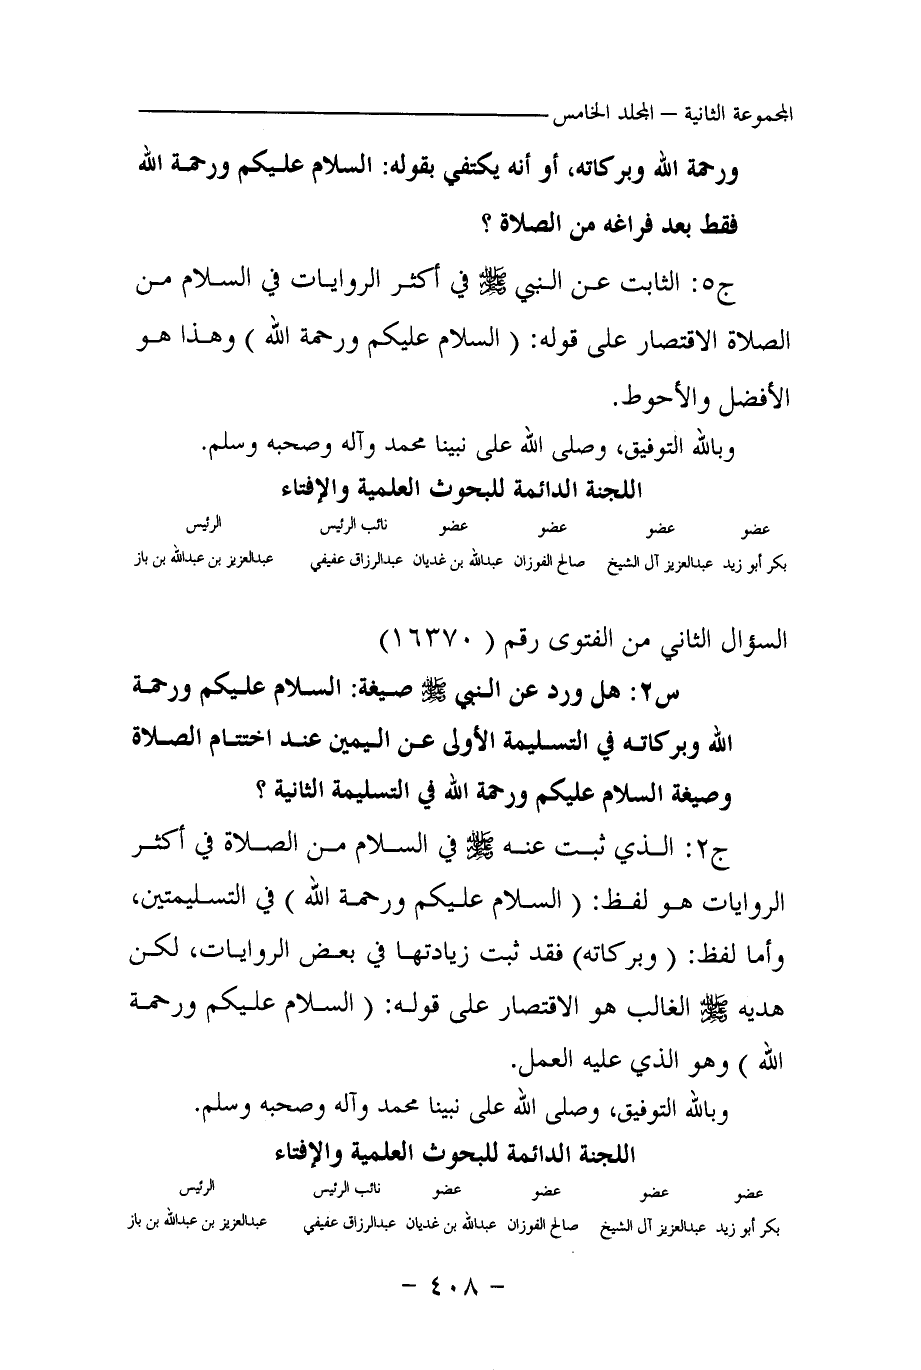 المجموعة الثانية – المجلد الخامس
ورحمة الله وبركاته، أو أنه يكتفي بقوله: السلام عليكم ورحمة الله
فقط بعد فراغه من الصلاة ؟
ج٥: الثابت عن النبي ﷺ في أكثر الروايات في السلام من
الصلاة الاقتصار على قوله: ( السلام عليكم ورحمة الله ) وهذا هو
الأفضل والأحوط.
وبالله التوفيق، وصلى الله على نبينا محمد وآله وصحبه وسلم.
اللجنة الدائمة للبحوث العلمية والإفتاء
عضو عضو عضو عضو نائب الرئيس الرئيس
بكر أبو زيد عبدالعزيز آل الشيخ صالح الفوزان عبدالله بن غديان عبدالرزاق عفيفي عبدالعزيز بن عبدالله بن باز
السؤال الثاني من الفتوى رقم ( ١٦٣٧٠)
س٢: هل ورد عن النبي ﷺ صيغة: السلام عليكم ورحمة
الله وبركاته في التسليمة الأولى عن اليمين عند اختتام الصلاة
وصيغة السلام عليكم ورحمة الله في التسليمة الثانية ؟
ج٢: الذي ثبت عنه ﷺ في السلام من الصلاة في أكثر
الروايات هو لفظ: ( السلام عليكم ورحمة الله ) في التسليمتين،
وأما لفظ: ( وبركاته) فقد ثبت زيادتها في بعض الروايات، لكن
هديه ﷺ الغالب هو الاقتصار على قوله: ( السلام عليكم ورحمة
الله ) وهو الذي عليه العمل.
وبالله التوفيق، وصلى الله على نبينا محمد وآله وصحبه وسلم.
اللجنة الدائمة للبحوث العلمية والإفتاء
عضو عضو عضو عضو نائب الرئيس الرئيس
بكر أبو زيد عبدالعزيز آل الشيخ صالح الفوزان عبدالله بن غديان عبدالرزاق عفيفي عبدالعزيز بن عبدالله بن باز
– ٤٠٨ –